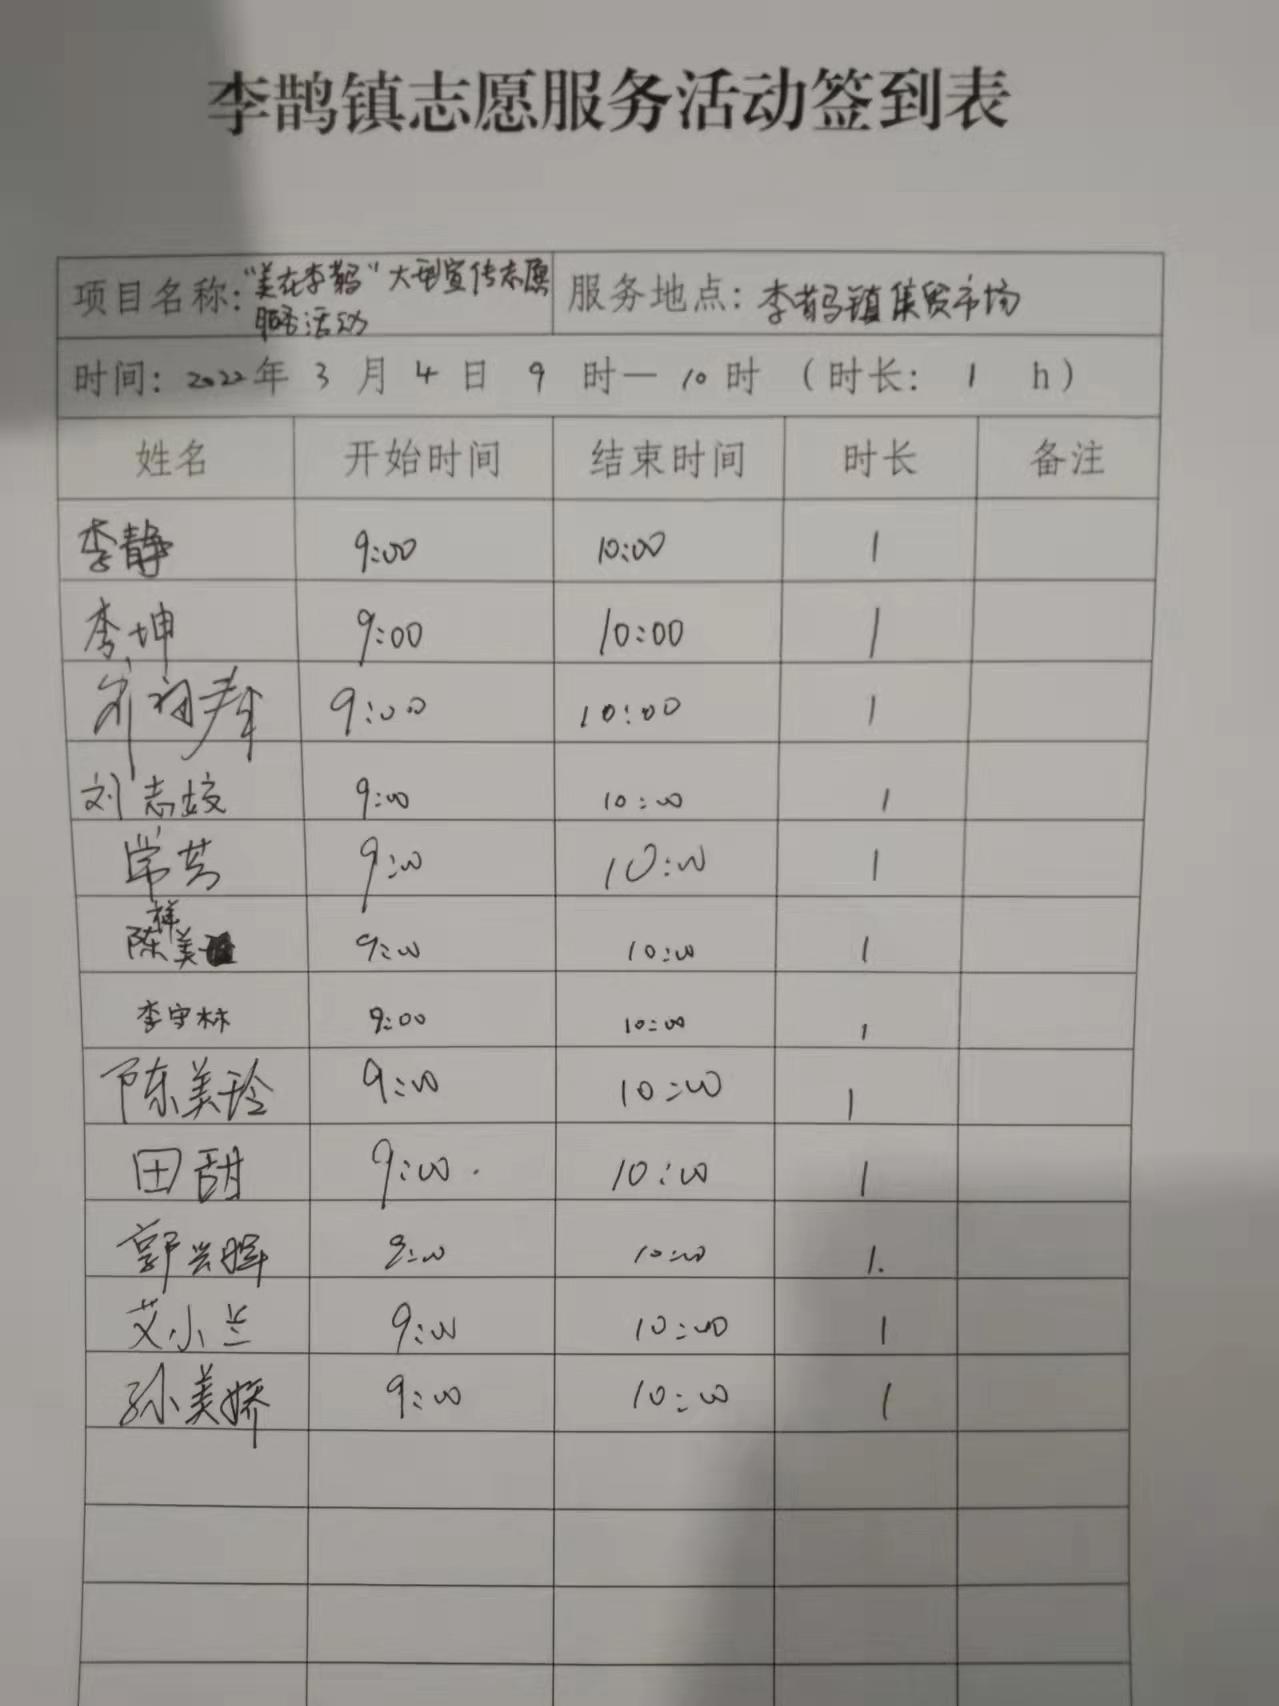 李鹊镇志愿服务活动签到表
项目名称：“美在李鹊”大型宣传志愿 服务地点：李鹊镇集贸市场
服务活动
时间：2022年 3 月 4 日 9 时—10时（时长： 1 h）
姓名 开始时间 结束时间 时长 备注
李静 9:00 10:00 1
李坤 9:00 10:00 1
9:00 10:00 1
刘志姣 9:00 10:00 1
常芳 9:00 10:00 1
陈美祥 9:00 10:00 1
李守林 9:00 10:00 1
陈美玲 9:00 10:00 1
田甜 9:00 10:00 1
郭兴晖 9:00 10:00 1.
艾小兰 9:00 10:00 1
孙美娇 9:00 10:00 1